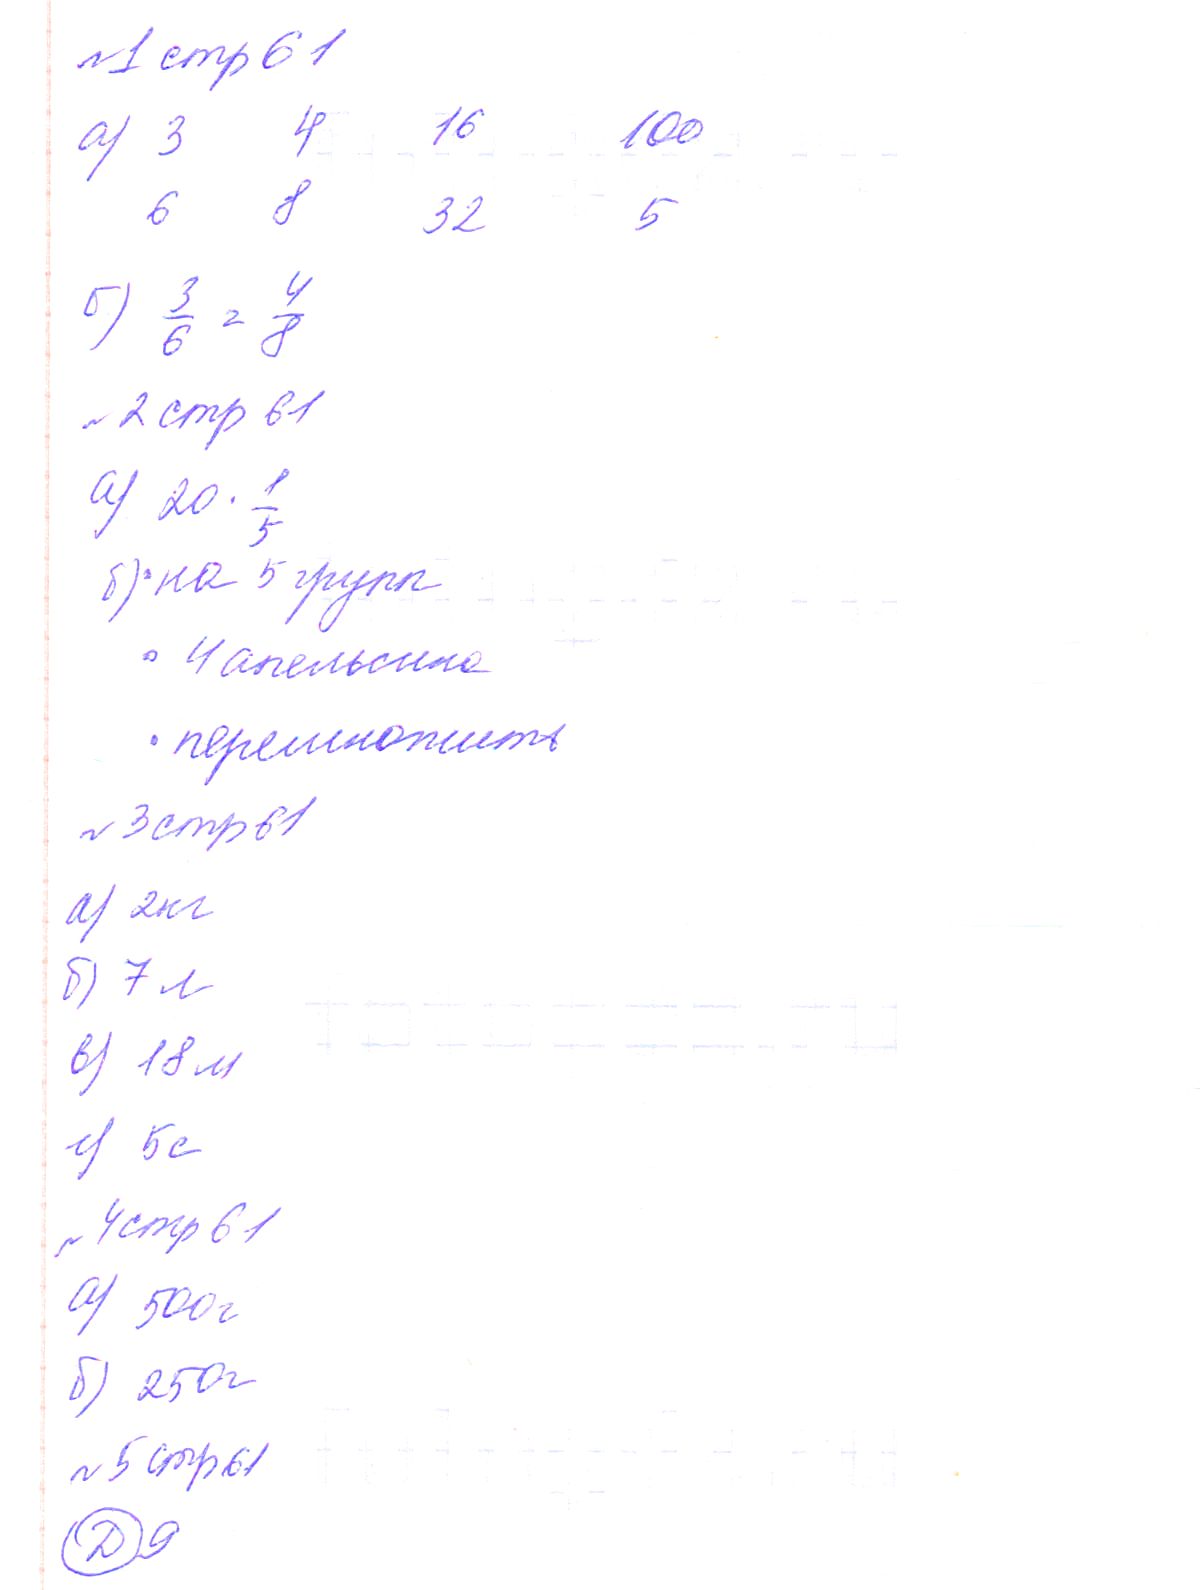 №1 стр 61
а) 3 4 16 100
6 8 32 5
б) 3/6 = 4/8
№2 стр 61
а) 20 · 1/5
б) • на 5 групп
• 4 апельсина
• перемножить
№3 стр 61
а) 2кг
б) 7 л
в) 18 м
г) 5с
№4 стр 61
а) 500г
б) 250г
№5 стр 61
Д 9